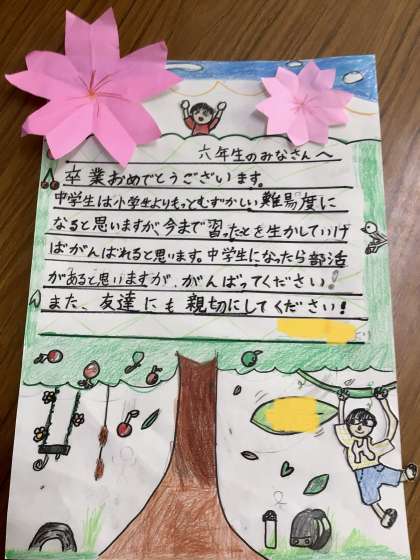 六年生のみなさんへ
卒業おめでとうございます。
中学生は小学生よりもっとむずかしい難易度に
なると思いますが今まで習ったことを生かしていけ
ばがんばれると思います。中学生になったら部活
があると思いますが、がんばってください!
また、友達にも親切にしてください!
より